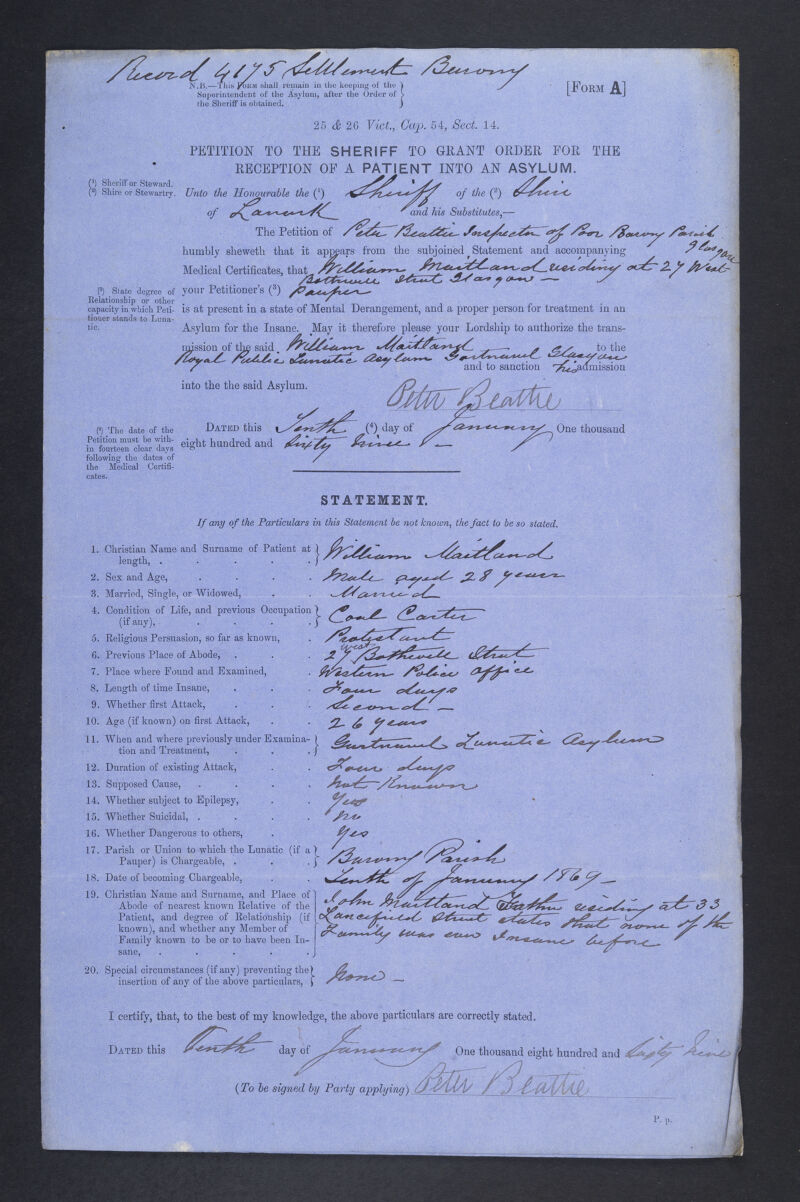 Record 4175 Settlement Barony
N.B.—This Form shall remain in the keeping of the
Superintendent of the Asylum, after the Order of
the Sheriff is obtained.
[Form A]
25 & 26 Vict., Cap. 54, Sect. 14.
PETITION TO THE SHERIFF TO GRANT ORDER FOR THE
RECEPTION OF A PATIENT INTO AN ASYLUM.
(¹) Sheriff or Steward.
(²) Shire or Stewartry.
Unto the Honourable the (¹) Sheriff of the (²) Shire
of Lanark and his Substitutes,—
The Petition of Peter Beattie Inspector of Poor Barony Parish
Glasgow
humbly sheweth that it appears from the subjoined Statement and accompanying
Medical Certificates, that William Maitland residing at 27 West
Bothwell Street Glasgow —
(³) State degree of
Relationship or other
capacity in which Peti-
tioner stands to Luna-
tic.
your Petitioner's (³) Pauper
is at present in a state of Mental Derangement, and a proper person for treatment in an
Asylum for the Insane. May it therefore please your Lordship to authorize the trans-
mission of the said William Maitland to the
Royal Public Lunatic Asylum Gartnavel Glasgow
and to sanction his admission
into the the said Asylum.
Peter Beattie
(⁴) The date of the
Petition must be with-
in fourteen clear days
following the dates of
the Medical Certifi-
cates.
Dated this Tenth (⁴) day of January One thousand
eight hundred and Sixty Nine —
STATEMENT.
If any of the Particulars in this Statement be not known, the fact to be so stated.
1. Christian Name and Surname of Patient at
length, . . . . . William Maitland
2. Sex and Age, . . . . Male aged 28 years
3. Married, Single, or Widowed, . . Married
4. Condition of Life, and previous Occupation
(if any), . . . . . Coal Carter
5. Religious Persuasion, so far as known, . Protestant
6. Previous Place of Abode, . . . 27 West Bothwell Street
7. Place where Found and Examined, . Western Police office
8. Length of time Insane, . . . Four days
9. Whether first Attack, . . . Second —
10. Age (if known) on first Attack, . . 26 years
11. When and where previously under Examina-
tion and Treatment, . . . Gartnavel Lunatic Asylum
12. Duration of existing Attack, . . Four days
13. Supposed Cause, . . . . Not Known
14. Whether subject to Epilepsy, . . Yes
15. Whether Suicidal, . . . . No
16. Whether Dangerous to others, . . Yes
17. Parish or Union to which the Lunatic (if a
Pauper) is Chargeable, . . . Barony Parish
18. Date of becoming Chargeable, . . Tenth of January 1869 —
19. Christian Name and Surname, and Place of
Abode of nearest known Relative of the
Patient, and degree of Relationship (if
known), and whether any Member of
Family known to be or to have been In-
sane, . . . . . .
John Maitland Father residing at 33
Lancefield Street states that none of the
Family was ever Insane before
20. Special circumstances (if any) preventing the
insertion of any of the above particulars, None —
I certify, that, to the best of my knowledge, the above particulars are correctly stated.
Dated this Tenth day of January One thousand eight hundred and Sixty Nine
(To be signed by Party applying) Peter Beattie
P. p.